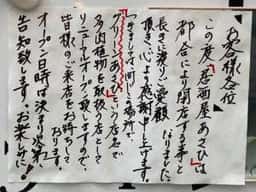 お客様各位
この度、居酒屋あさひは
都合により閉店する事と
なりました。
長きに渡りご愛顧
頂き、心より感謝申し上げます。
つきましては、同じこの場所で、
という店名で
多肉植物を取り扱う店として
リニューアルオープン致しますので、
皆様のご来店をお待ちして
おります。
オープン日時は決まり次第
告知致します。お楽しみに!